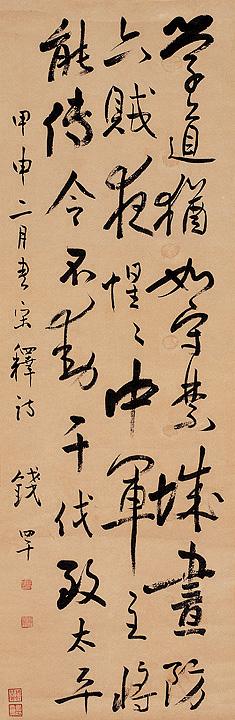 學道猶如守禁城晝防
六賊夜惺〻中軍主將
能傳令不動干戈致太平
甲申二月書宋釋詩 錢罕